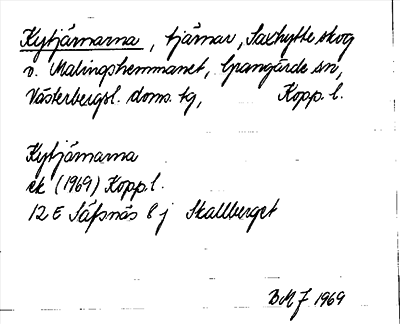 Kytjärnarna, tjärnar, Saxhytte skog
v. Malingshemmanet, Grangärde sn,
Västerbergsl. doms. tg, Kopp. l.
Kytjärnarna
ek (1969) Kopp l.
12 E Säfsnäs 8 j Skallberget
BMJ 1969